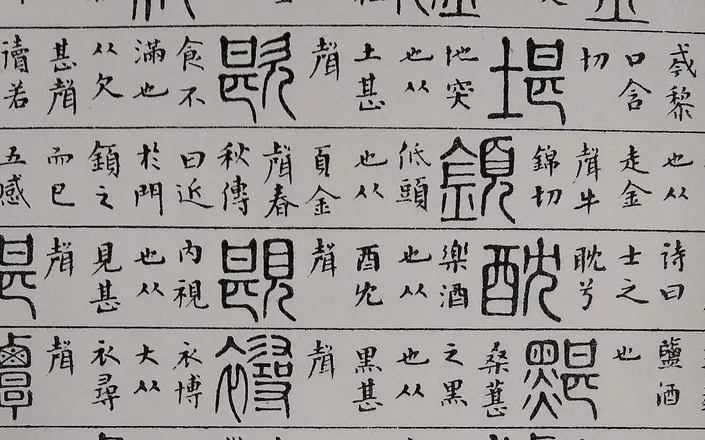 𢦟黎口含切堪地突也从土甚聲歁食不滿也从欠甚聲讀若
也从走金聲牛錦切顉低頭也从頁金聲春秋傳曰近於門顉之而已五感
詩曰士之耽兮酖樂酒也从酉冘聲𧡪內視也从見甚聲
鹽酒也黮桑葚之黑也从黑甚聲襑衣博大从衣尋聲